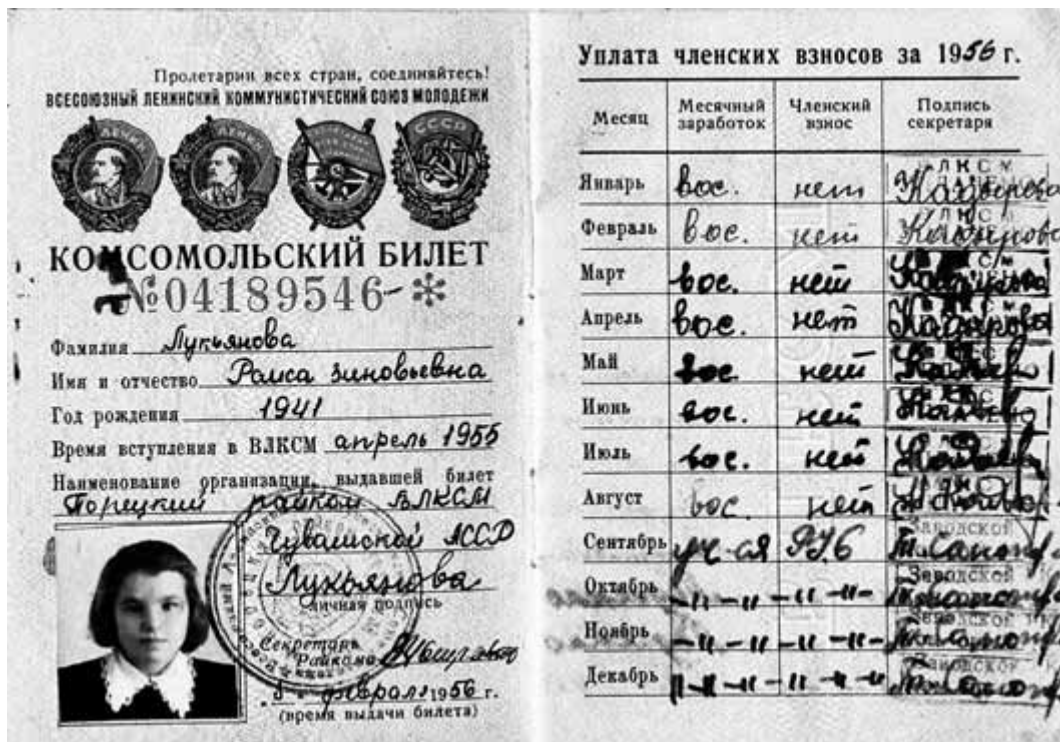 Пролетарии всех стран, соединяйтесь!
ВСЕСОЮЗНЫЙ ЛЕНИНСКИЙ КОММУНИСТИЧЕСКИЙ СОЮЗ МОЛОДЕЖИ
ЛЕНИН
ЛЕНИН
СССР
КОМСОМОЛЬСКИЙ БИЛЕТ
№04189546
Фамилия Лукьянова
Имя и отчество Раиса Зиновьевна
Год рождения 1941
Время вступления в ВЛКСМ апрель 1955
Наименование организации, выдавшей билет
райком ВЛКСМ
Чувашской АССР
Лукьянова
личная подпись
Секретарь
Райкома
февраля 1956 г.
(время выдачи билета)
Уплата членских взносов за 1956 г.
Месяц Месячный заработок Членский взнос Подпись секретаря
Январь вос. нет
Февраль вос. нет
Март вос. нет
Апрель вос. нет
Май вос нет
Июнь вос. нет
Июль вос. нет
Август вос. нет
Сентябрь уч-ся Заводской
Октябрь -"-"- -"-"- Заводской
Ноябрь -"-"- -"-"- Заводской
Декабрь -"-"- -"-"- Заводской